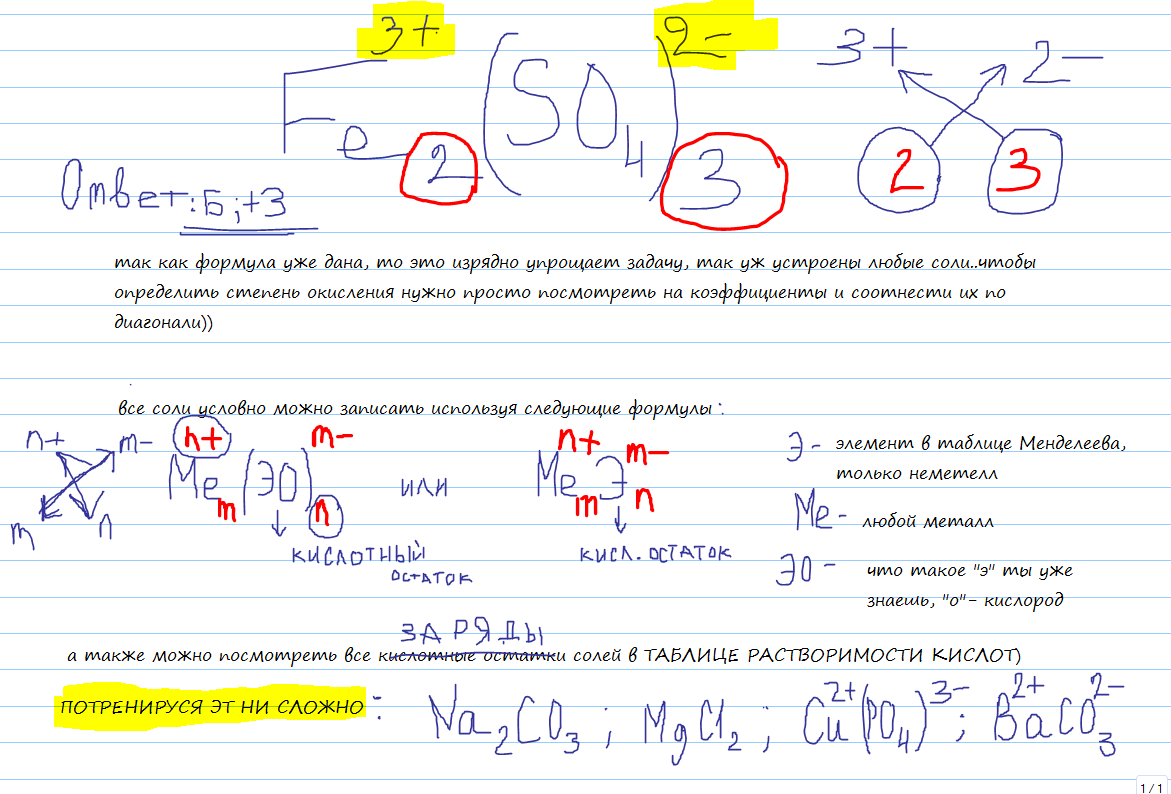 3+ 2- 3+ 2-
Fe2(SO4)3 2 3
Ответ: Б; +3
так как формула уже дана, то это изрядно упрощает задачу, так уж устроены любые соли..чтобы
определить степень окисления нужно просто посмотреть на коэффициенты и соотнести их по
диагонали))
все соли условно можно записать используя следующие формулы :
n+ m- n+ m- n+ m-
m n Me m (ЭО) n или Me m Э n
кислотный
остаток
кисл. остаток
Э - элемент в таблице Менделеева,
только неметелл
Me - любой металл
ЭО - что такое "э" ты уже
знаешь, "о"- кислород
ЗАРЯДЫ
а также можно посмотреть все кислотные остатки солей в ТАБЛИЦЕ РАСТВОРИМОСТИ КИСЛОТ)
ПОТРЕНИРУСЯ ЭТ НИ СЛОЖНО : Na2CO3 ; MgCl2 ; Cu2+(PO4)3- ; Ba2+CO3 2-
1/1